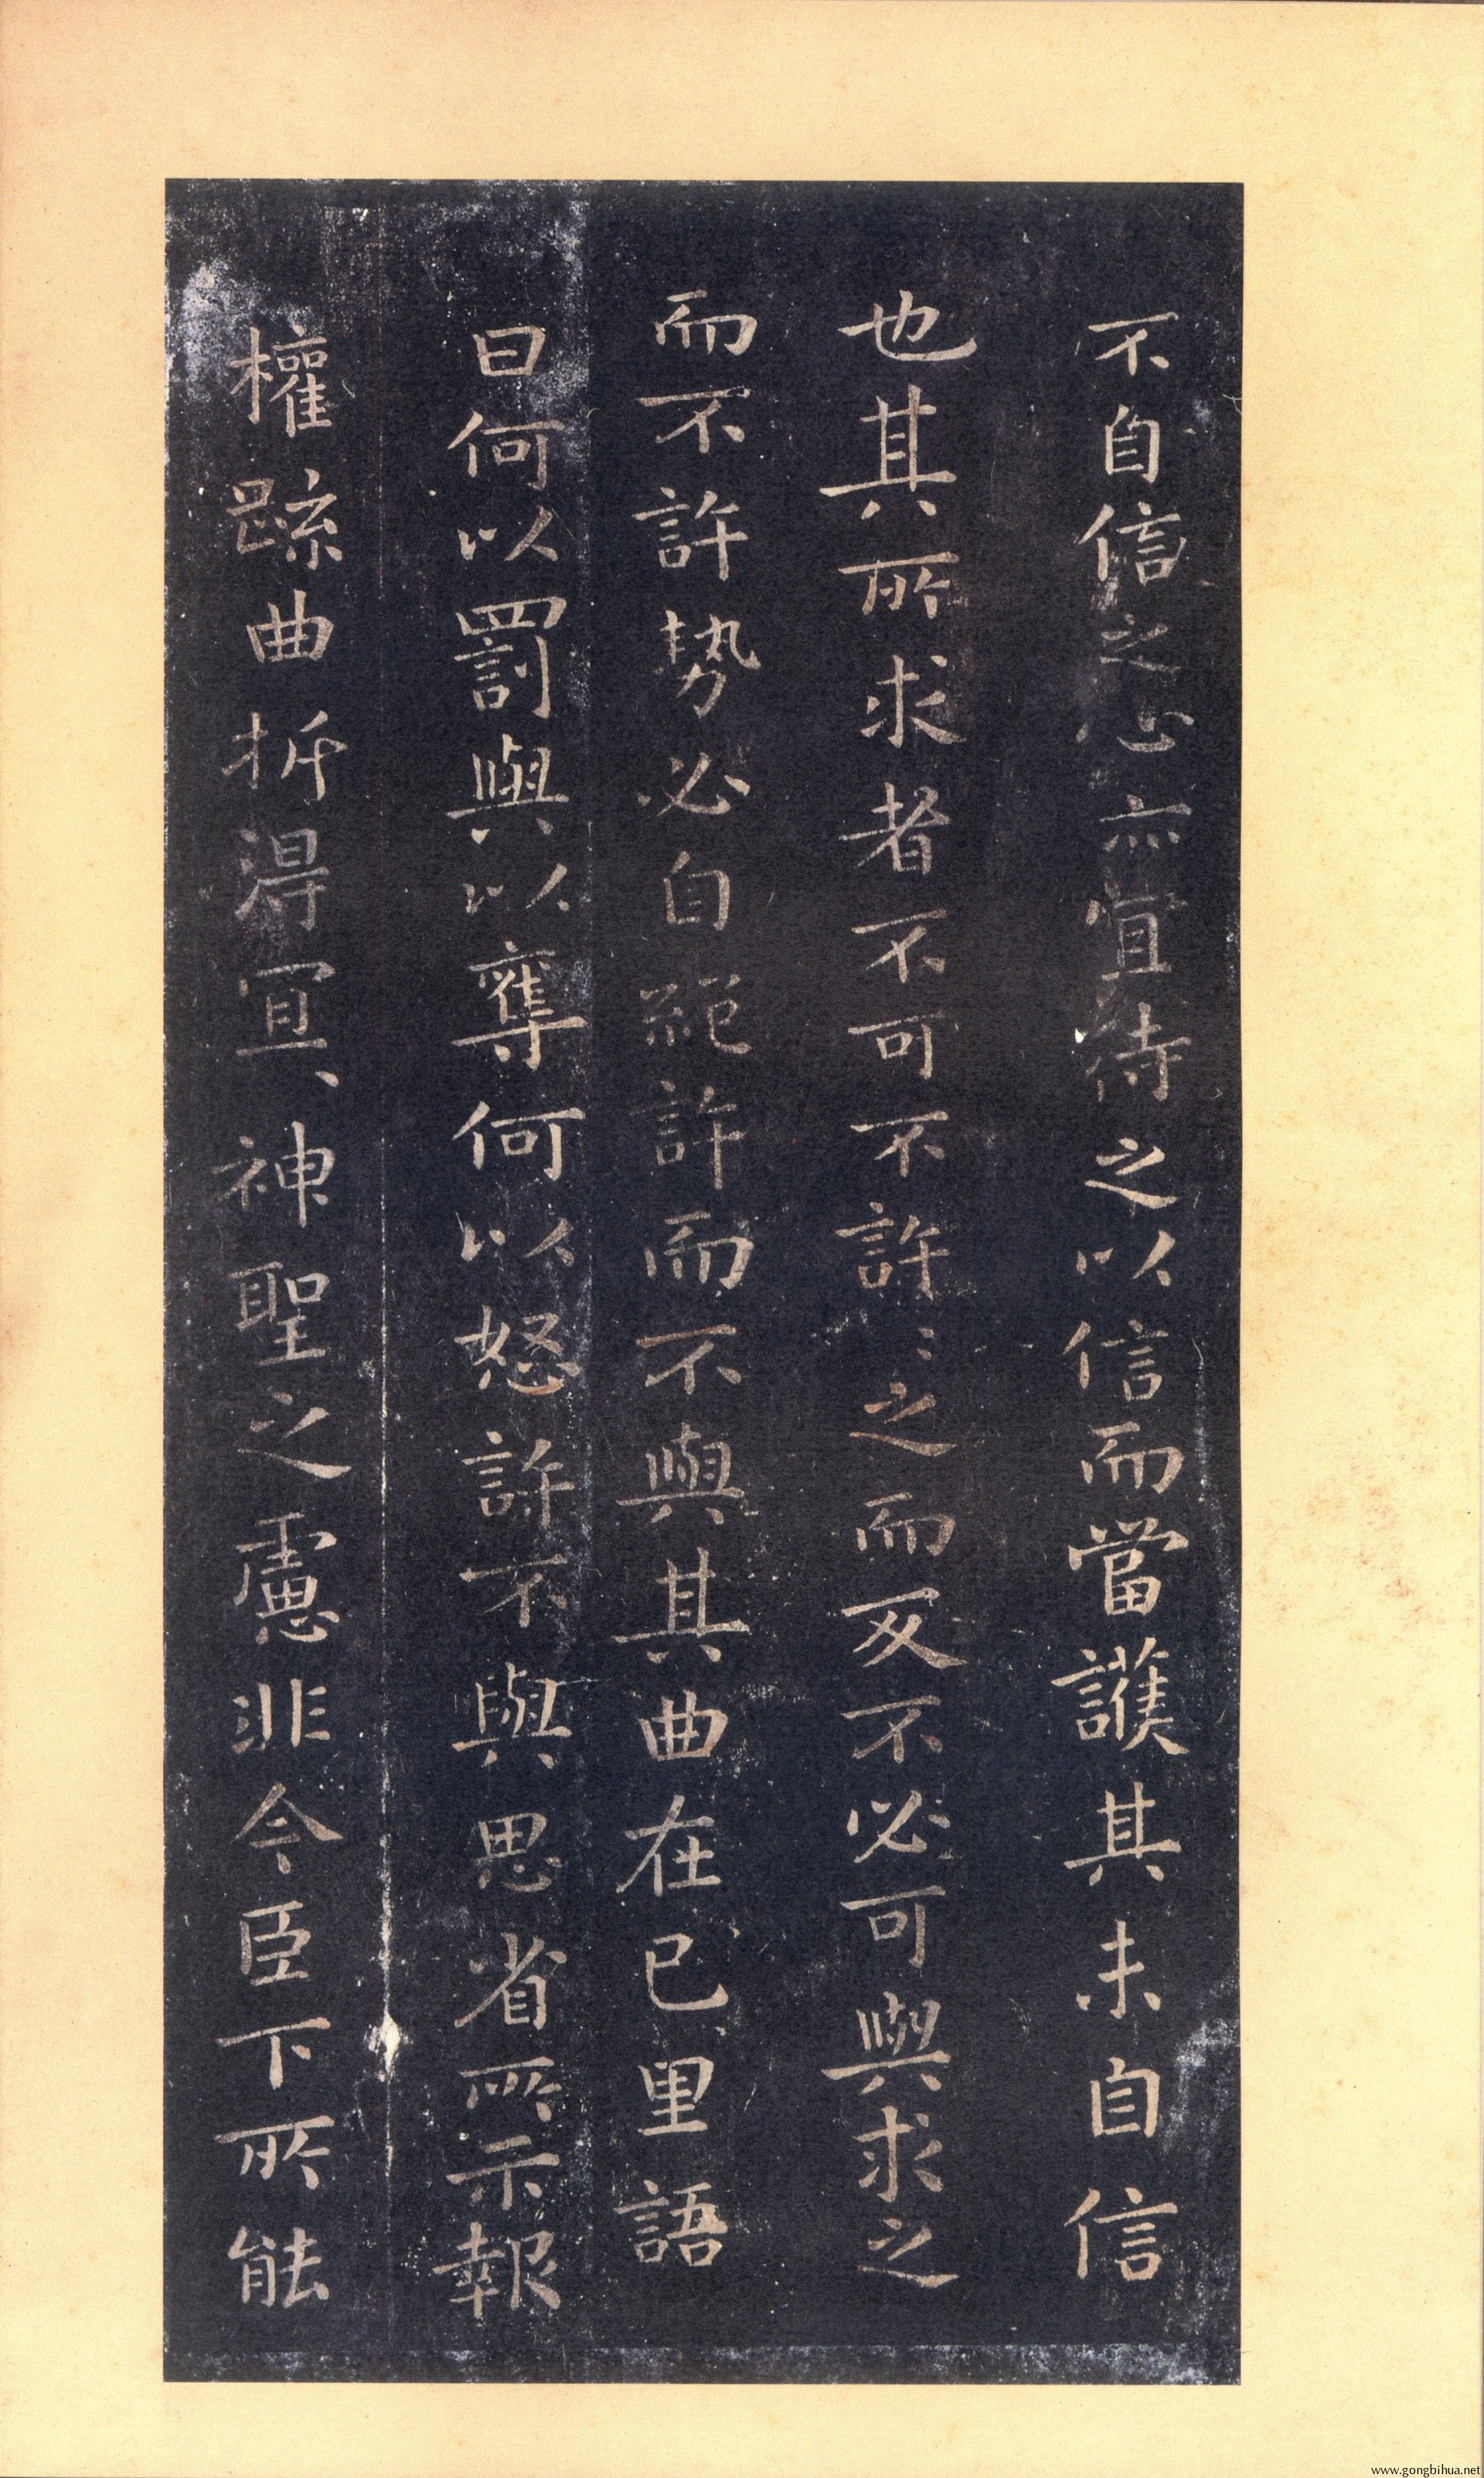 不自信之心亦宜待之以信而當護其未自信
也其所求者不可不許許之而反不必可與求之
而不許勢必自絕許而不與其曲在己里語
曰何以罰與以奪何以怒許不與思省所示報
權疏曲折得宜宜神聖之慮非今臣下所能
www.gongbihua.net